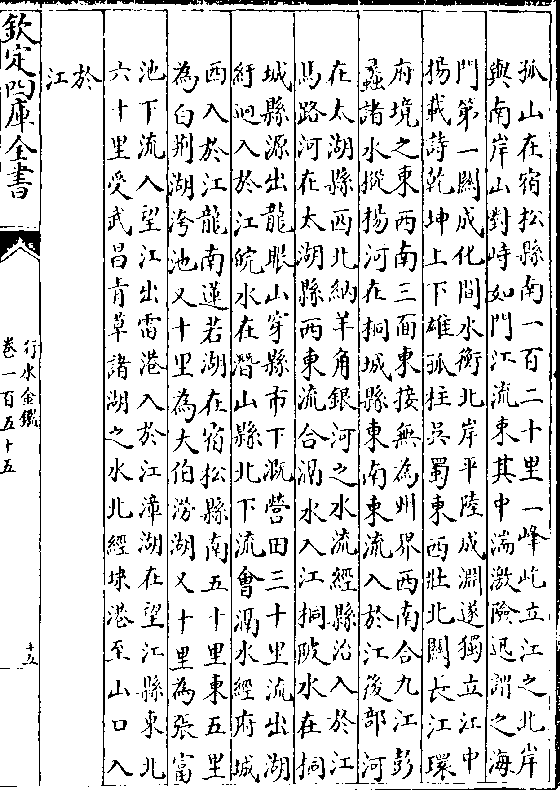 孤山在宿松縣南一百二十里一峰屹立江之北岸
與南岸山對峙如門江流束其中湍激險迅謂之海
門第一關成化間水衝北岸平陸成淵遂獨立江中
揚載詩乾坤上下雄孤柱呉蜀東西壯北關長江環
府境之東西南三面東接無為州界西南合九江彭
蠡諸水摐揚河在桐城縣東南東流入於江後部河
在太湖縣西北納羊角銀河之水流經縣治入於江
馬路河在太湖縣西東流合㵎水入江桐陂水在桐
城縣源出龍眼山穿縣市下溉營田三十里流出湖
紆迴入於江皖水在潛山縣北下流會㵎水經府城
西入於江龍南蓮若湖在宿松縣南五十里東五里
為白荆湖洿池又十里為大伯澇湖又十里為張富
池下流入望江出雷港入於江漳湖在望江縣東北
六十里受武昌青草諸湖之水北經埭港至山口入
於
江
欽定四庫全書
行水金鑑
卷一百五十五
十五